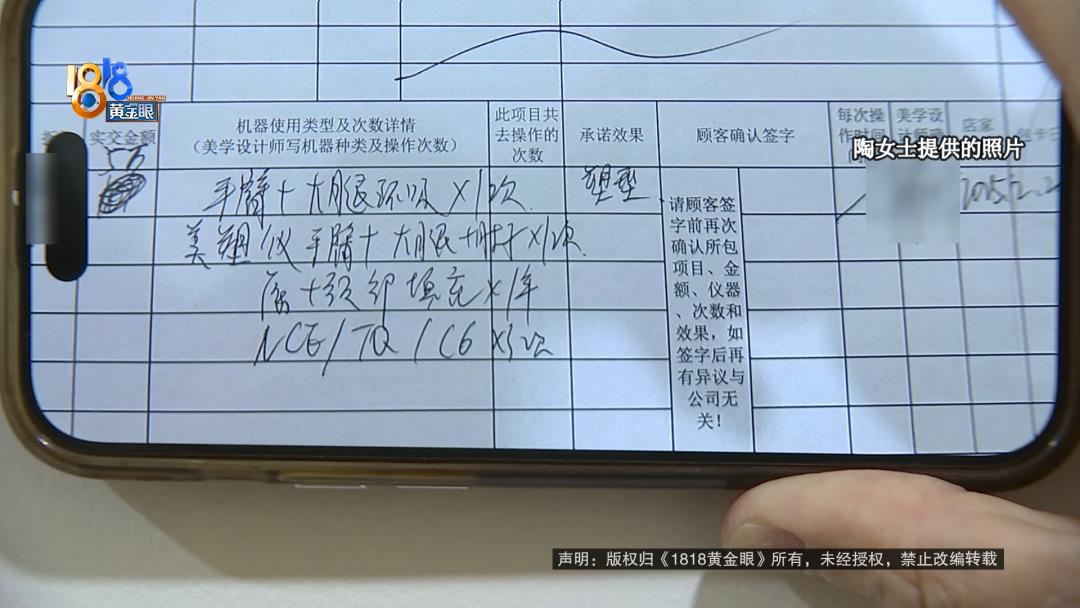 1818
HUANG JIN YAN
黄金眼
实交金额
机器使用类型及次数详情
（美学设计师写机器种类及操作次数）
此项目共
去操作的
次数
承诺效果
顾客确认签字
每次操
作时间
美学设
店家
陶女士提供的照片
手臂+大腿环吸×1次
塑型
美塑仪 手臂+大腿+肚子×1次
颈部填充×1年
NCE/TQ/C6 ×3次
请顾客签
字前再次
确认所包
项目、金
额、仪器
、次数和
效果，如
签字后再
有异议与
公司无
关！
声明：版权归《1818黄金眼》所有，未经授权，禁止改编转载